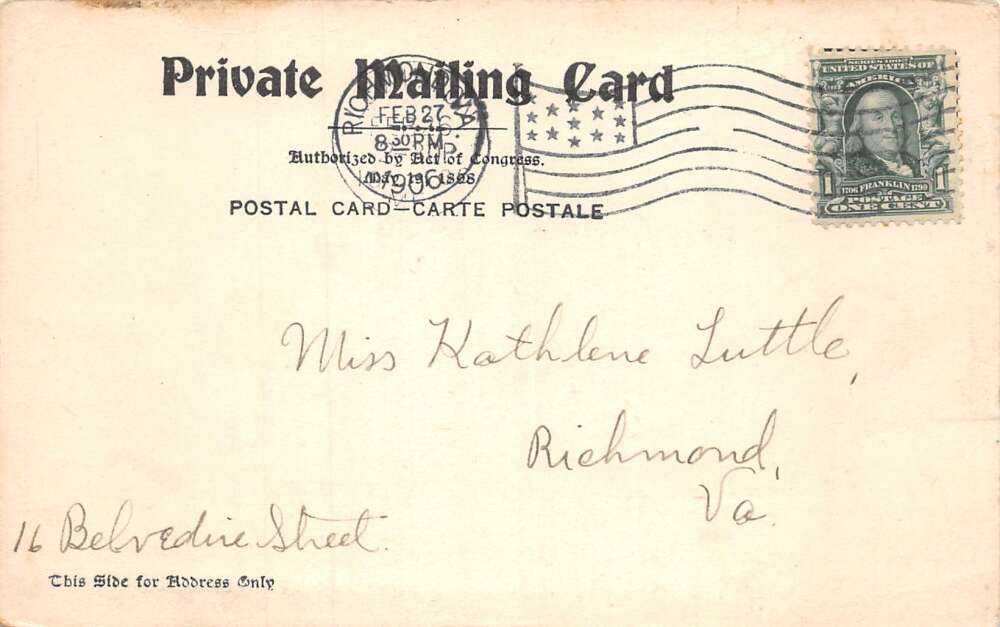 Private Mailing Card
RICHMOND, VA.
FEB 27
8 30 PM
1906
Authorized by Act of Congress.
May 19, 1898
POSTAL CARD—CARTE POSTALE
SERIES 1902
UNITED STATES OF
AMERICA
1 1
1706 FRANKLIN 1790
POSTAGE
ONE CENT
Miss Kathlene Luttle,
Richmond,
Va.
16 Belvedire Street.
This Side for Address Only